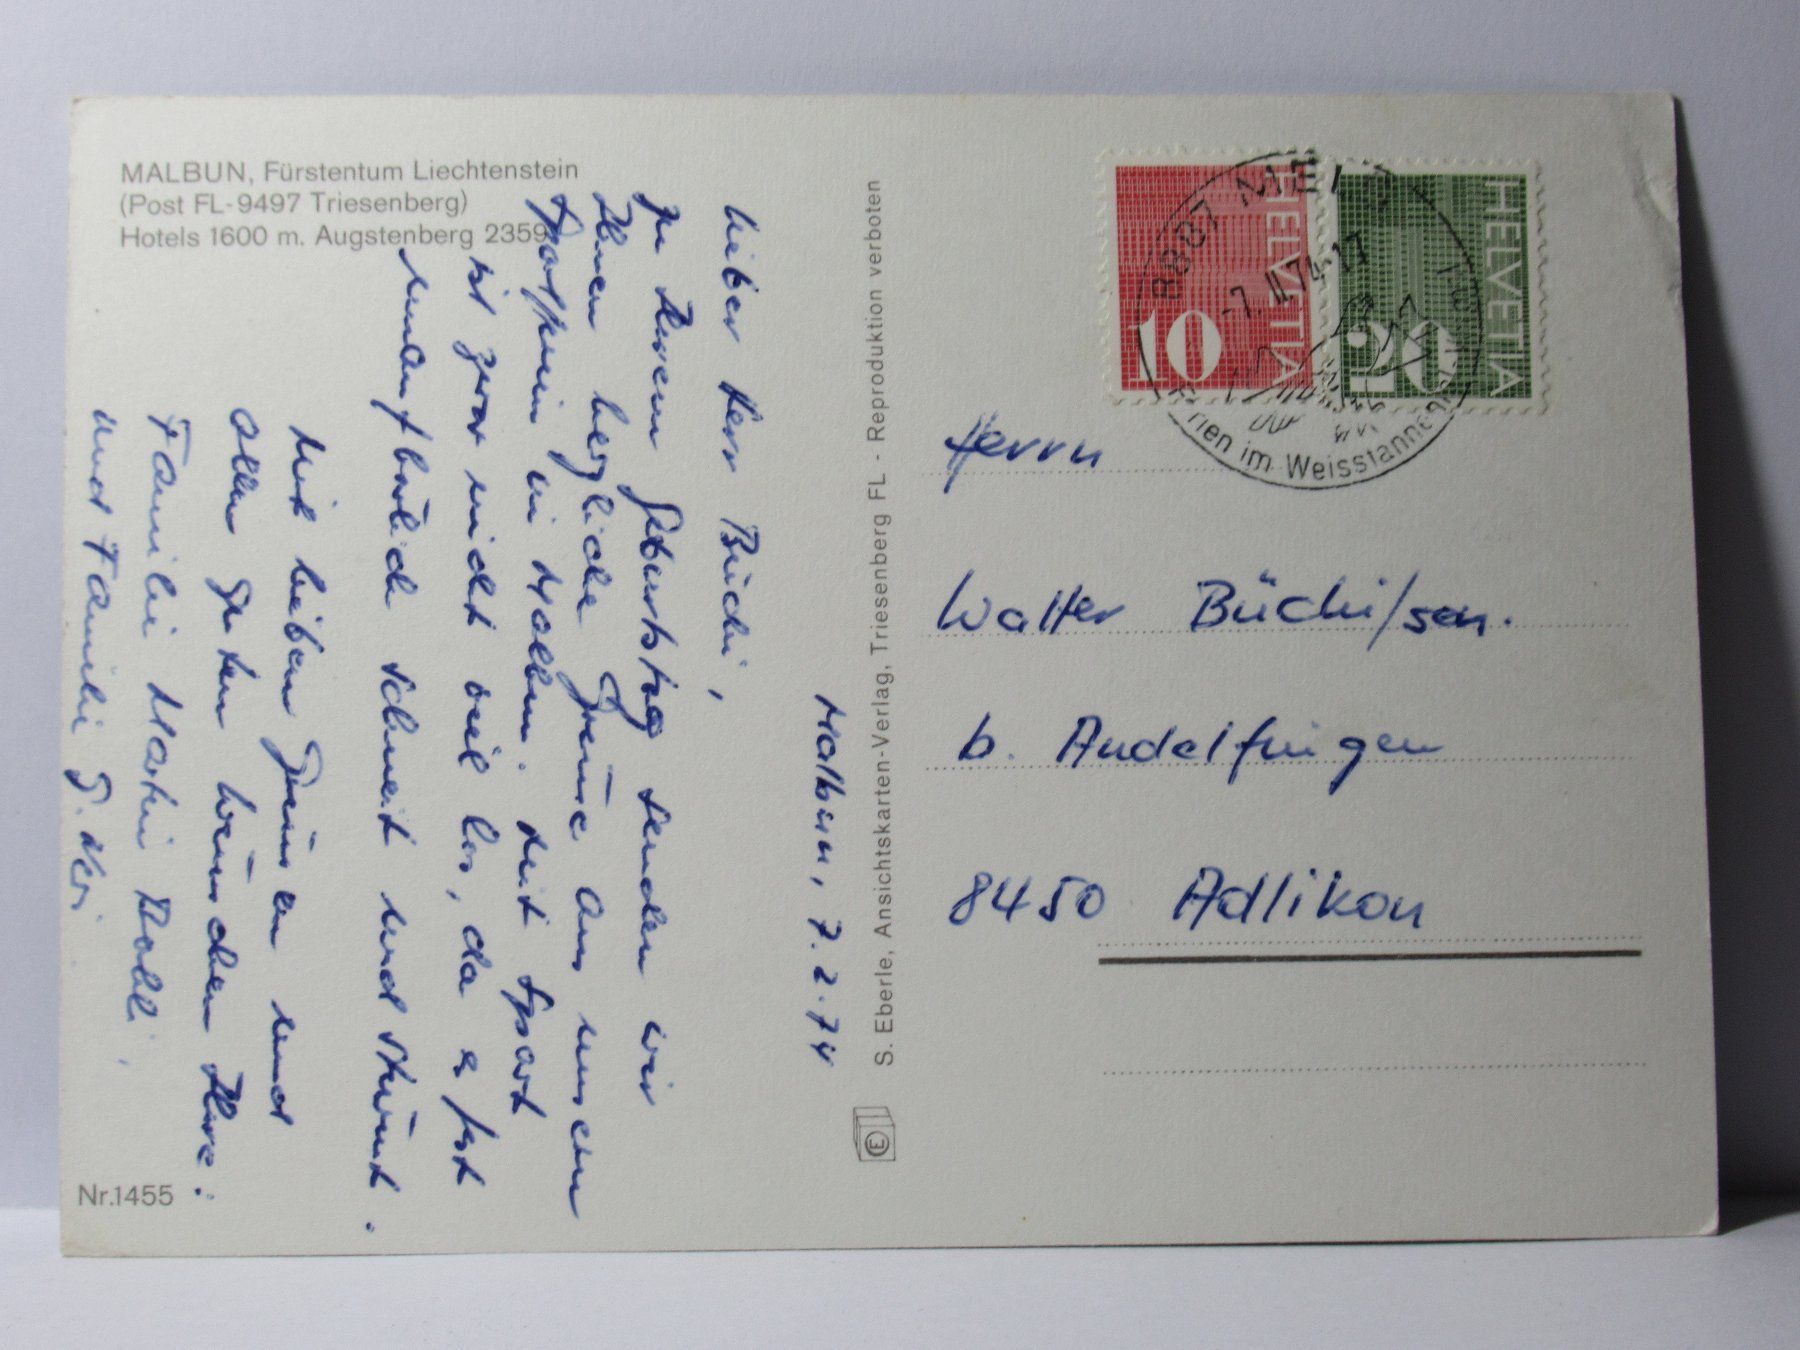 MALBUN, Fürstentum Liechtenstein
(Post FL-9497 Triesenberg)
Hotels 1600 m. Augstenberg 2359
Malbun, 7.2.74
Lieber Herr Büchi,
Zu Ihrem Geburtstag senden wir
Ihnen herzliche Grüsse aus unsern
Sportferien in Malbun. Mit Sport
ist zwar nicht viel los, da es fast
unaufhörlich schneit und stürmt.
Mit lieben Grüssen und
allen guten Wünschen Ihre:
Familie Martin
und Familie G.
Nr.1455
S. Eberle, Ansichtskarten-Verlag, Triesenberg FL - Reproduktion verboten
E
HELVETIA
10
HELVETIA
20
8887 MELS
-7. 74-17
Ferien im Weisstannen
Herrn
Walter Büchi/sen.
b. Andelfingen
8450 Adlikon